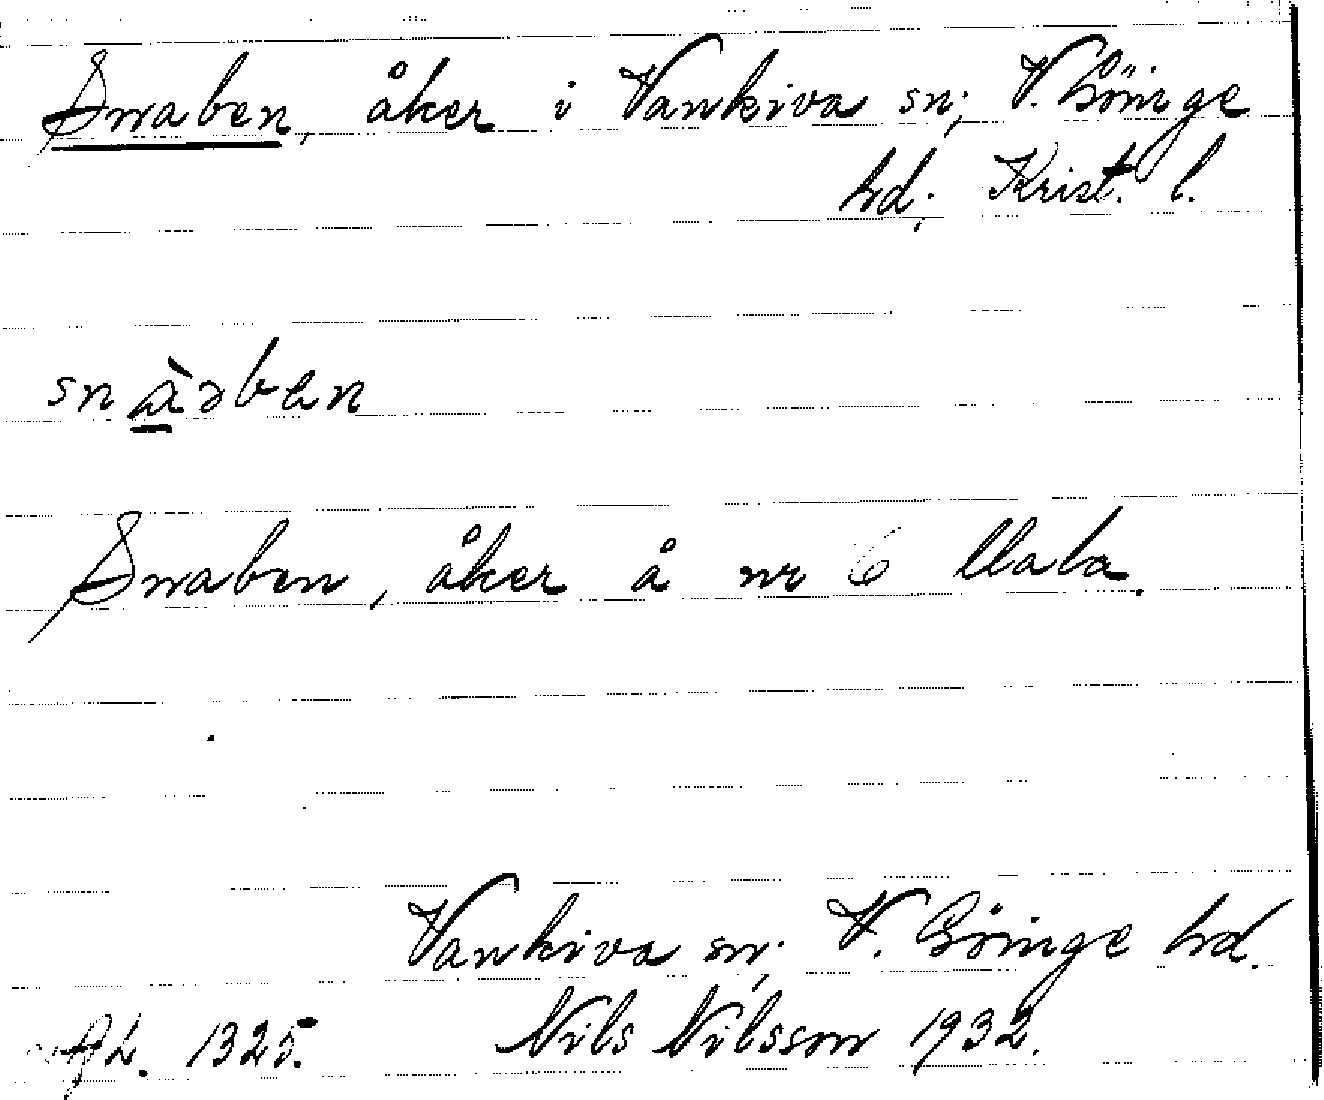 Snaben, åker i Vankiva sn; V. Göinge
hd; Krist. l.
snàəben
Snaben, åker å nr 6 Mala.
Vankiva sn; V. Göinge hd.
AL. 1325. Nils Nilsson 1932.